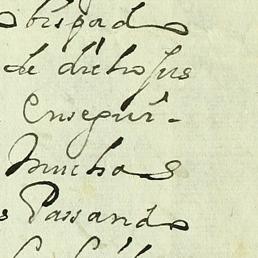 obispado
de dichos sus
ensegui-
muchas
Passando